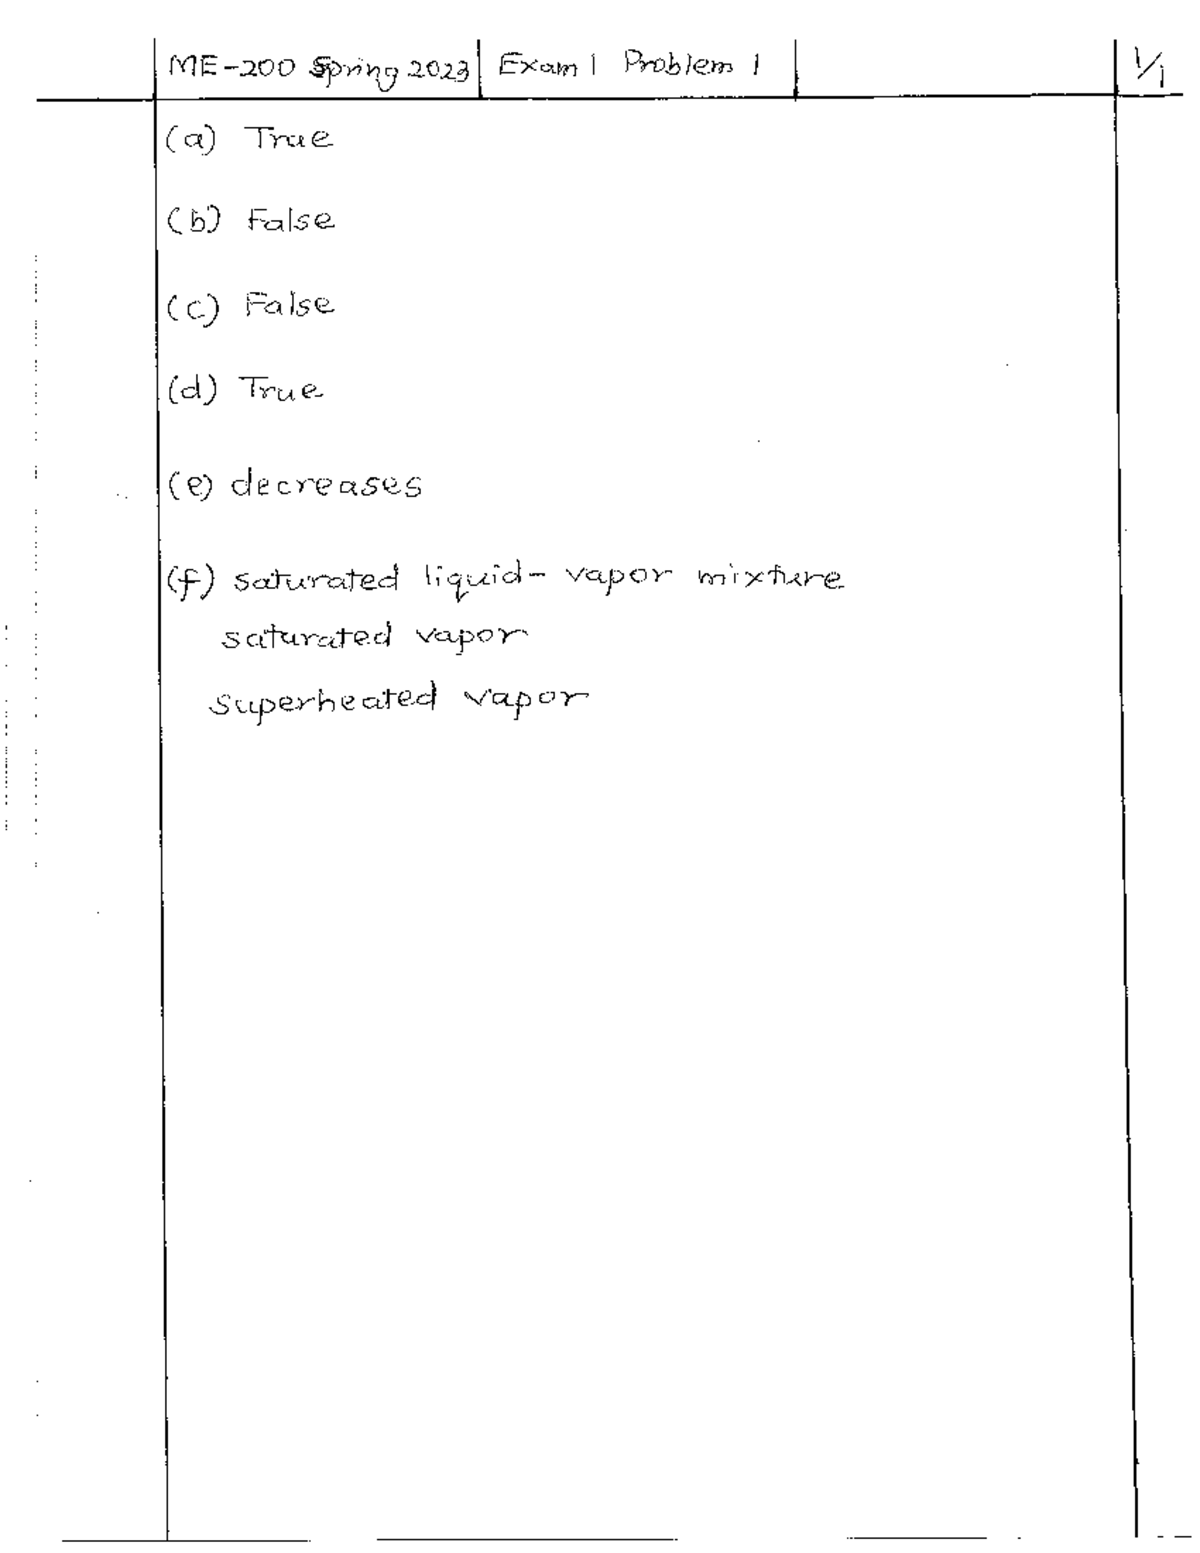 ME-200 Spring 2023 Exam 1 Problem 1 1/1
(a) True
(b) False
(c) False
(d) True
(e) decreases
(f) saturated liquid- vapor mixture
saturated vapor
superheated vapor